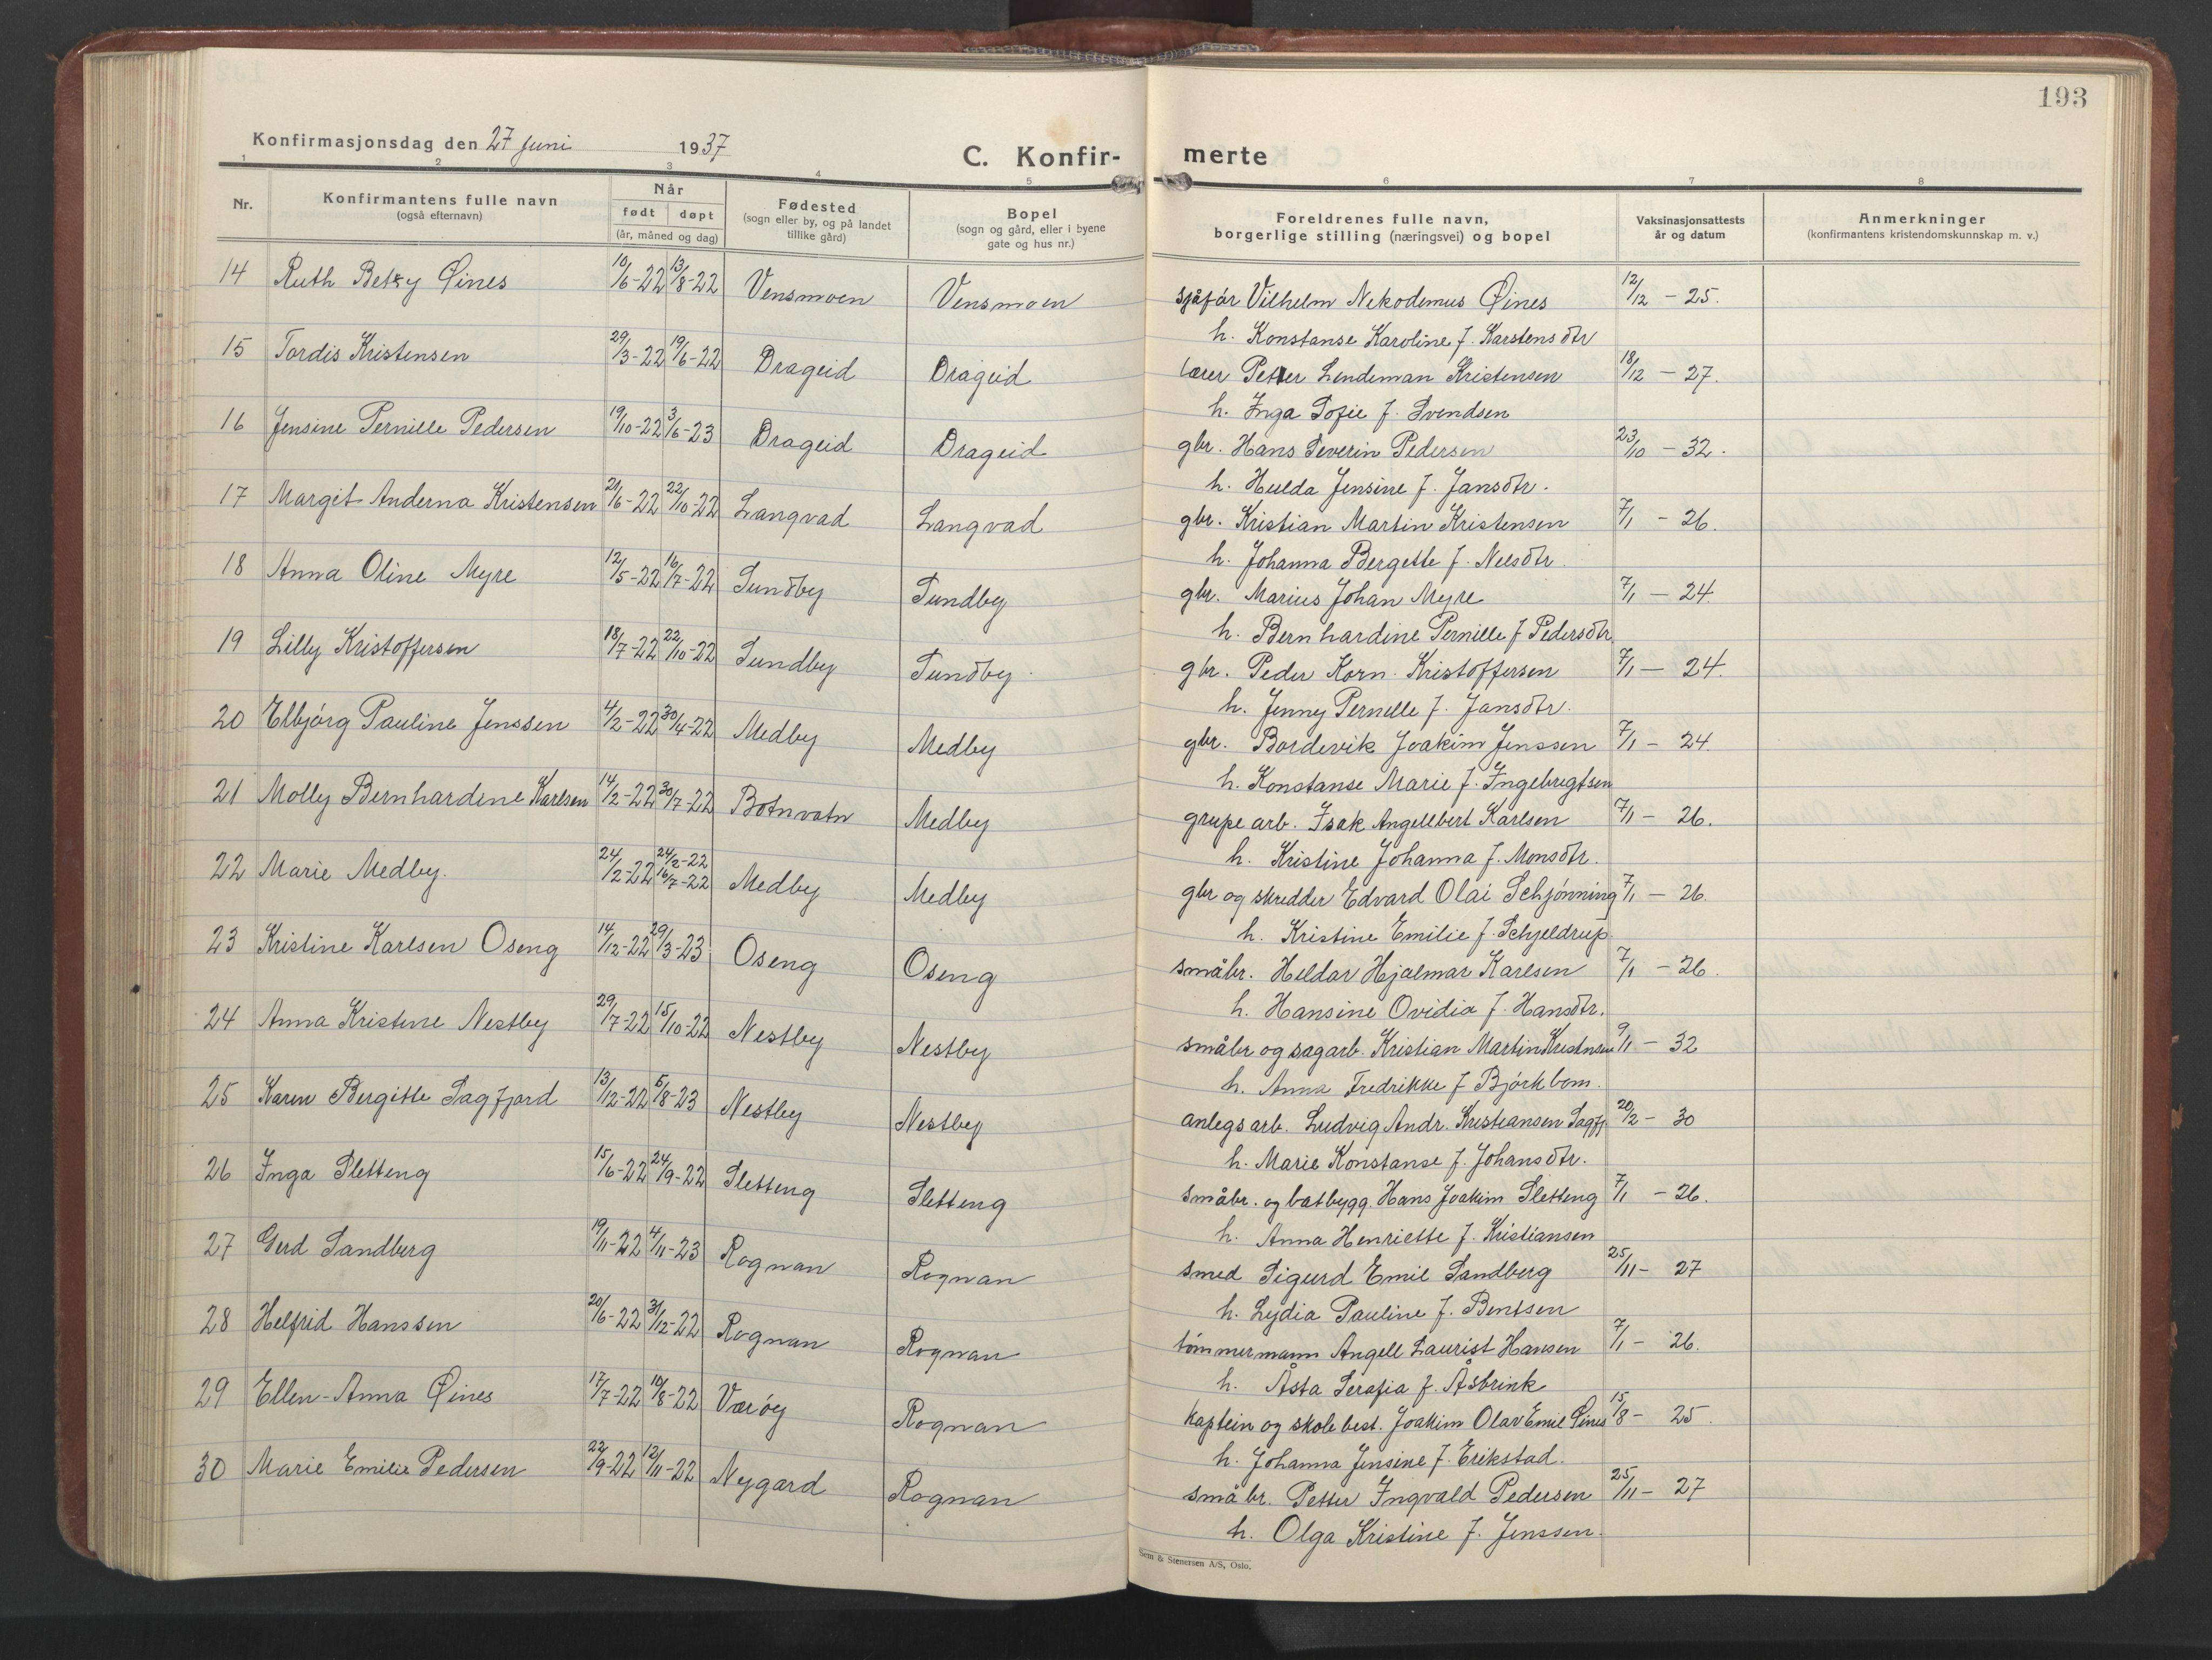 193
Konfirmasjonsdag den 27 juni 1937
C. Konfir- merte
1 2 3 4 5 6 7 8
Nr.
Konfirmantens fulle navn
(også efternavn)
Når
født døpt
(år, måned og dag)
Fødested
(sogn eller by, og på landet
tillike gård)
Bopel
(sogn og gård, eller i byene
gate og hus nr.)
Foreldrenes fulle navn,
borgerlige stilling (næringsvei) og bopel
Vaksinasjonsattests
år og datum
Anmerkninger
(konfirmantens kristendomskunnskap m. v.)
14 Ruth Betzy Øines 10/6-22 13/8-22 Vensmoen Vensmoen sjåfør Vilhelm Nekodemus Øines 12/12 - 25.
h. Konstanse Karoline f. Karstensdtr
15 Tordis Kristensen 29/3-22 19/6-22 Drageid Drageid lærer Petter Lindeman Kristensen 18/12 - 27.
h. Inga Sofie f. Svendsen
16 Jensine Pernille Pedersen 19/10-22 3/6-23 Drageid Drageid gbr. Hans Severin Pedersen 23/10 - 32.
h. Hulda Jensine f. Jansdtr.
17 Margit Anderna Kristensen 21/6-22 22/10-22 Langvad Langvad gbr. Kristian Martin Kristensen 7/1 - 26.
h. Johanna Bergette f. Nelsdtr.
18 Anna Oline Myre 12/5-22 16/7-22 Sundby Sundby gbr. Marius Johan Myre 7/1 - 24.
h. Bernhardine Pernille f Pedersdtr
19 Lilly Kristoffersen 18/7-22 22/10-22 Sundby Sundby gbr. Peder Korn. Kristoffersen 7/1 - 24.
h. Jenny Pernelle f. Jansdtr.
20 Elbjørg Pauline Jenssen 4/2-22 30/4-22 Medby Medby gbr. Bordevik Joakim Jenssen 7/1 - 24.
h. Konstanse Marie f. Ingebrigtsen
21 Molly Bernhardine Karlsen 14/2-22 30/7-22 Botnvatn Medby grupe arb. Isak Angellbert Karlsen 7/1 - 26.
h. Kristine Johanna f. Monsdtr.
22 Marie Medby. 24/2-22 24/2-22 16/7-22 Medby Medby gbr og skredder Edvard Olai Schjønning 7/1 - 26.
h. Kristine Emilie f. Schjeldrup.
23 Kristine Karlsen Oseng 14/12-22 29/3-23 Oseng Oseng småbr. Heldor Hjalmar Karlsen 7/1 - 26.
h. Hansine Ovidia f. Hansdtr.
24 Anna Kristine Nestby 29/7-22 15/10-22 Nestby Nestby småbr og sagarb. Kristian Martin Kristensen 9/1 - 32
h. Anna Fredrikke f Bjørkbom.
25 Karen Bergitte Sagfjord 13/12-22 5/8-23 Nestby Nestby anlegsarb. Ludvig Andr. Kristiansen Sagfj. 20/2 - 30
h. Marie Konstanse f. Johansdtr.
26 Inga Sletteng 15/6-22 24/9-22 Sletteng Sletteng småbr. og båtbygg. Hans Joakim Sletteng 7/1 - 26.
h. Anna Henriette f. Kristiansen
27 Gerd Sandberg 19/11-22 4/11-23 Rognan Rognan smed Sigurd Emil Sandberg 25/11 - 27
h. Lydia Pauline f. Bentsen
28 Helfrid Hanssen 20/6-22 31/12-22 Rognan Rognan tømmermann Angell Laurist Hansen 7/1 - 26.
h. Åsta Serafia f. Åsbrink
29 Ellen-Anna Øines 17/7-22 19/8-22 Værøy Rognan kaptein og skolebest. Joakim Olav Emil Øines 15/8 - 25.
h. Johanna Jensine f. Erikstad.
30 Marie Emilie Pedersen 22/9-22 12/11-22 Nygard Rognan småbr. Petter Ingvald Pedersen 25/11 - 27
h. Olga Kristine f. Jenssen.
Sem & Stenersen A/S, Oslo.